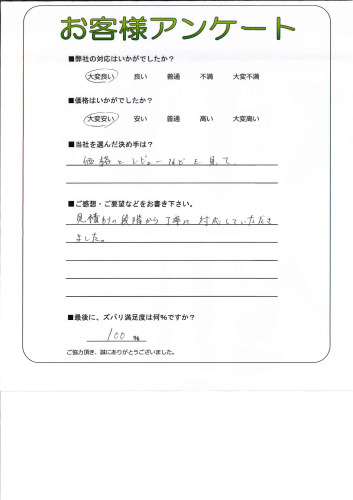 お客様アンケート
■弊社の対応はいかがでしたか?
大変良い 良い 普通 不満 大変不満
■価格はいかがでしたか?
大変安い 安い 普通 高い 大変高い
■当社を選んだ決め手は?
価格とレビューなどを見て
■ご感想・ご要望などをお書き下さい。
見積りの段階から丁寧に対応していただき
ました。
■最後に、ズバリ満足度は何%ですか?
100 %
ご協力頂き、誠にありがとうございました。